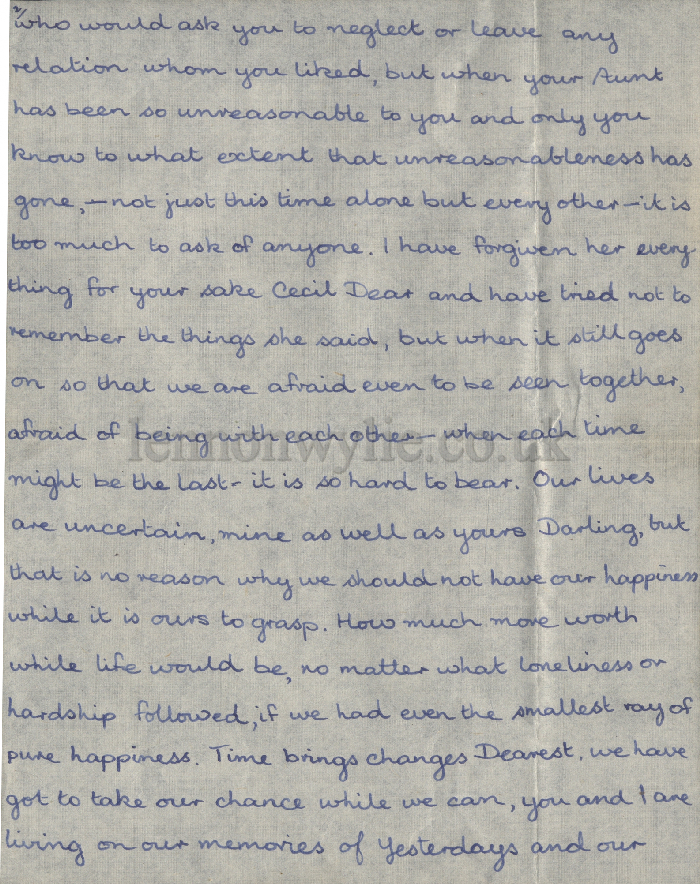 2/
who would ask you to neglect or leave any
relation whom you liked, but when your Aunt
has been so unreasonable to you and only you
know to what extent that unreasonableness has
gone, – not just this time alone but every other – it is
too much to ask of anyone. I have forgiven her every-
thing for your sake Cecil Dear and have tried not to
remember the things she said, but when it still goes
on so that we are afraid even to be seen together,
afraid of being with each other – when each time
might be the last – it is so hard to bear. Our lives
are uncertain, mine as well as yours Darling, but
that is no reason why we should not have our happiness
while it is ours to grasp. How much more worth
while life would be, no matter what loneliness or
hardship followed, if we had even the smallest ray of
pure happiness. Time brings changes Dearest. we have
got to take our chance while we can, you and I are
living on our memories of Yesterdays and our
lennonwylie.co.uk